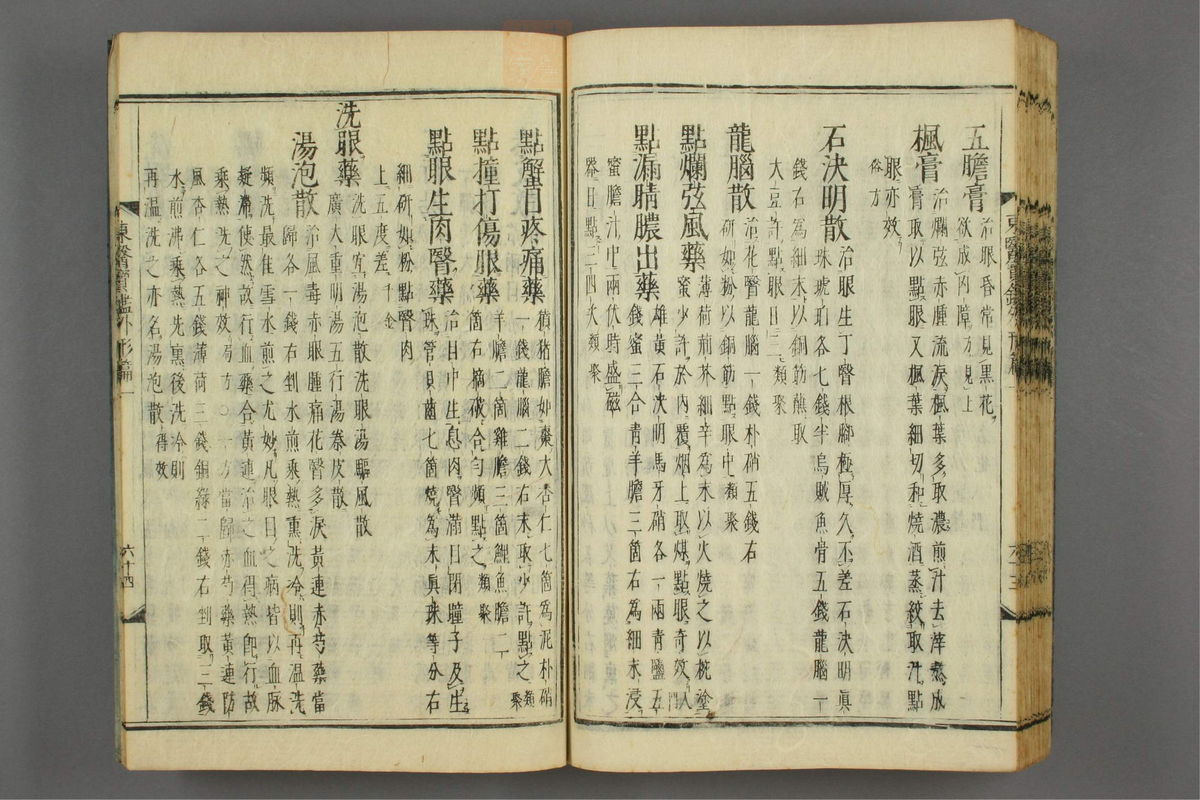 五膽膏治眼昏常見黑花
欲成內障方見上
楓膏治爛弦赤腫流淚楓葉多取濃煎汁去滓熬成
膏取以點眼又楓葉細切和燒酒蒸絞取汁點
眼亦效
俗方
石決明散治眼生丁瞖根腳極厚久不差石決明眞
珠琥珀各七錢半烏賊魚骨五錢龍腦一
錢右爲細末以銅筋蘸取
大豆許點眼日三類聚
龍腦散治花瞖龍腦一錢朴硝五錢右
研如粉以銅筋點眼中類聚
點爛弦風藥薄荷荊芥細辛爲末以火燒之以椀塗
蜜少許於內覆烟上取煤點眼奇效入門
點漏睛膿出藥雄黃石決明馬牙硝各一兩靑鹽五
錢蜜三合靑羊膽三箇右爲細末浸
蜜膽汁中兩伏時盛磁
器日點三四次類聚
東醫寶鑑外形篇一
六十三
點蟹目疼痛藥獖猪膽如棗大杏仁七箇爲泥朴硝
一錢龍腦二錢右末取少許點之類聚
點撞打傷眼藥羊膽二箇雞膽三箇鯉魚膽二
箇右摘破合勻頻點之類聚
點眼生肉瞖藥治目中生息肉瞖滿目閉瞳子及生
珠管貝齒七箇燒爲末眞珠等分右
細硏如粉點瞖肉
上五度差千金
洗眼藥洗眼宜湯泡散洗眼湯驅風散
廣大重明湯五行湯秦皮散
湯泡散治風毒赤眼腫痛花瞖多淚黃連赤芍藥當
歸各一錢右剉水煎乘熱熏洗冷則再溫洗
頻洗最佳雪水煎之尤妙凡眼目之病皆以血脉
凝滯使然故行血藥合黃連治之血得熱卽行故
乘熱洗之神效局方○一方當歸赤芍藥黃連防
風杏仁各五錢薄荷三錢銅綠二錢右剉取三錢
水煎沸乘熱先熏後洗冷則
再溫洗之亦名湯泡散得效
東醫寶鑑外形篇一
六十四